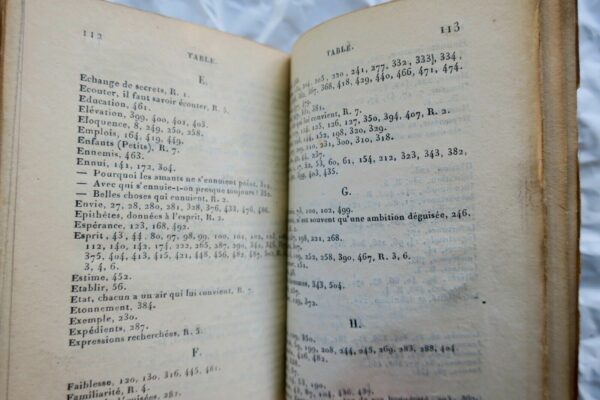 112
TABLE.
E.
Echange de secrets, R. 1.
Ecouter, il faut savoir écouter, R. 5.
Education, 461.
Elévation, 399, 400, 402, 403.
Eloquence, 8, 249, 250, 258.
Emplois, 164, 419, 449.
Enfants (Petits), R. 7.
Ennemis, 463.
Ennui, 141, 172, 304.
— Pourquoi les amants ne s'ennuient point,
— Avec qui s'ennuie-t-on presque toujours?
— Belles choses qui ennuient, R. 2.
Envie, 27, 28, 280, 281, 328, 376, 433, 476, 486.
Epithètes, données à l'esprit, R. 2.
Espérance, 123, 168, 492.
Esprit, 43, 44, 80, 97, 98, 99, 100, 101, 102,
112, 140, 142, 174, 223, 265, 287, 290, 340,
375, 404, 413, 415, 421, 448, 456, 482,
3, 4, 6.
Estime, 452.
Etablir, 56.
Etat, chacun a un air qui lui convient, R. 7.
Etonnement, 384.
Exemple, 230.
Expédients, 287.
Expressions recherchées, R. 5.
F.
Faiblesse, 120, 130, 316, 445, 481.
Familiarité, R. 4.
113
TABLE.
105, 220, 241, 277, 332, 333, 334,
367, 368, 418, 429, 440, 466, 471, 474.
381.
lui convient, R. 7.
126, 127, 350, 394, 407, R. 2.
152, 198, 320, 329.
231, 300, 310, 318.
287.
53, 60, 61, 154, 212, 323, 343, 382,
403, 435.
G.
100, 102, 499.
est souvent qu'une ambition déguisée, 246.
198, 221, 268.
358, 390, 467, R. 3, 6.
343, 504.
372.
H.
199, 208, 244, 245, 269, 283, 288, 404
482.
190.